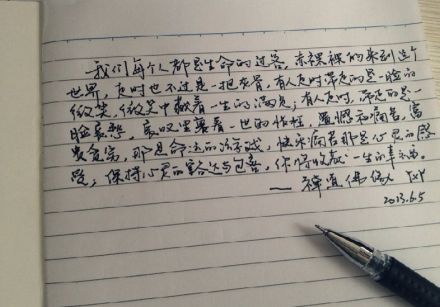 我们每个人都是生命的过客,赤裸裸的来到这个
世界,走时也不过是一把灰骨,有人走时深走的是一脸的
微笑,微笑中散着一生的满足;有人走时,深走的是一
脸哀愁,哀叹里裹着一世的怜惜。愚和富
贵贫富,那是命运的游戏,快乐痛苦那是心灵的感
受,保持心灵的豁达与包容,你将收获一生的幸福。
2023.6.5